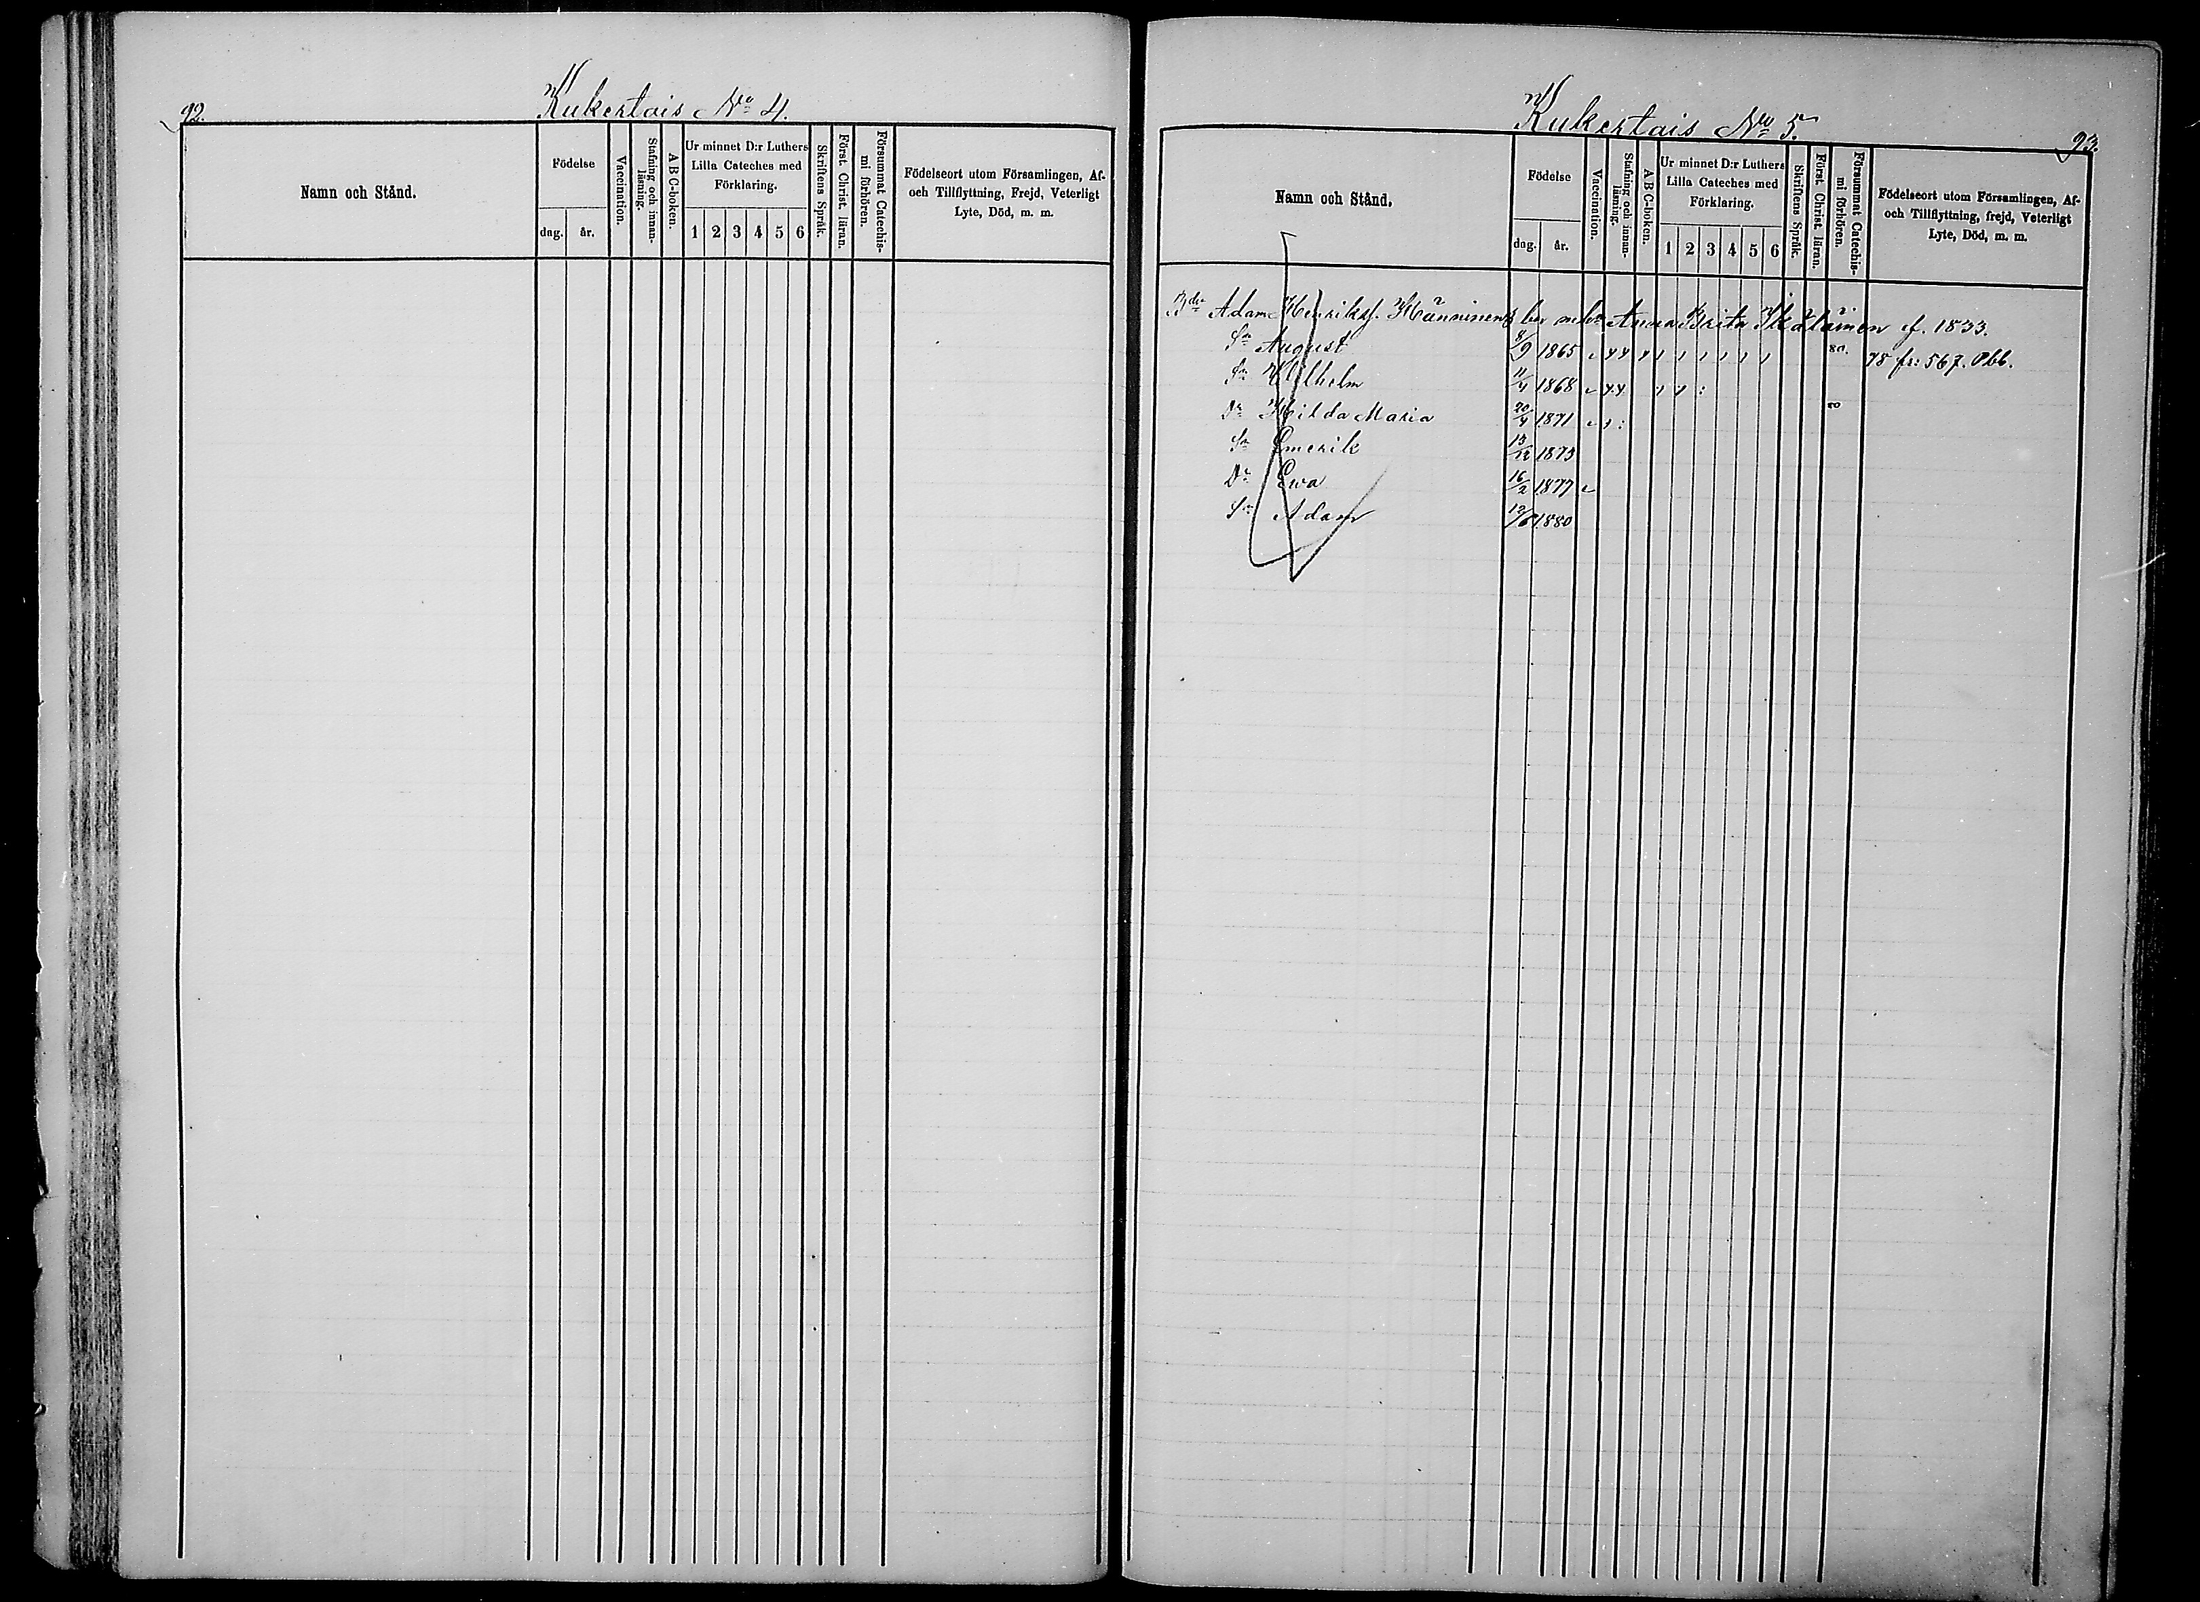 92.
Kukertais No 4.
Namn och Stånd.
Födelse
dag. år.
Vaccination.
Stafning och innan-
läsning.
A B C-boken.
Ur minnet D:r Luthers
Lilla Cateches med
Förklaring.
1 2 3 4 5 6
Skriftens Språk.
Först. Christ. läran.
Försummat Catechis-
mi förhören.
Födelseort utom Församlingen, Af-
och Tillflyttning, Frejd, Veterligt
Lyte, Död, m. m.
Kukertais No 5.
93.
Namn och Stånd.
Födelse
dag. år.
Vaccination.
Stafning och innan-
läsning.
A B C-boken.
Ur minnet D:r Luthers
Lilla Cateches med
Förklaring.
1 2 3 4 5 6
Skriftens Språk.
Först. Christ. läran.
Försummat Catechis-
mi förhören.
Födelseort utom Församlingen, Af-
och Tillflyttning, frejd, Veterligt
Lyte, Död, m. m.
Adam Henriksf. Hänninens Anna Brita f. 1833.
Sn August 8/9 1865 80. 78 fr: 567. Obb.
Sn Wilhelm 11/4 1868
Dr Hilda Maria 20/4 1871
Sn Emerik 13/12 1873
Dr Ewa 16/2 1877
Sn Adam 12/6 1880